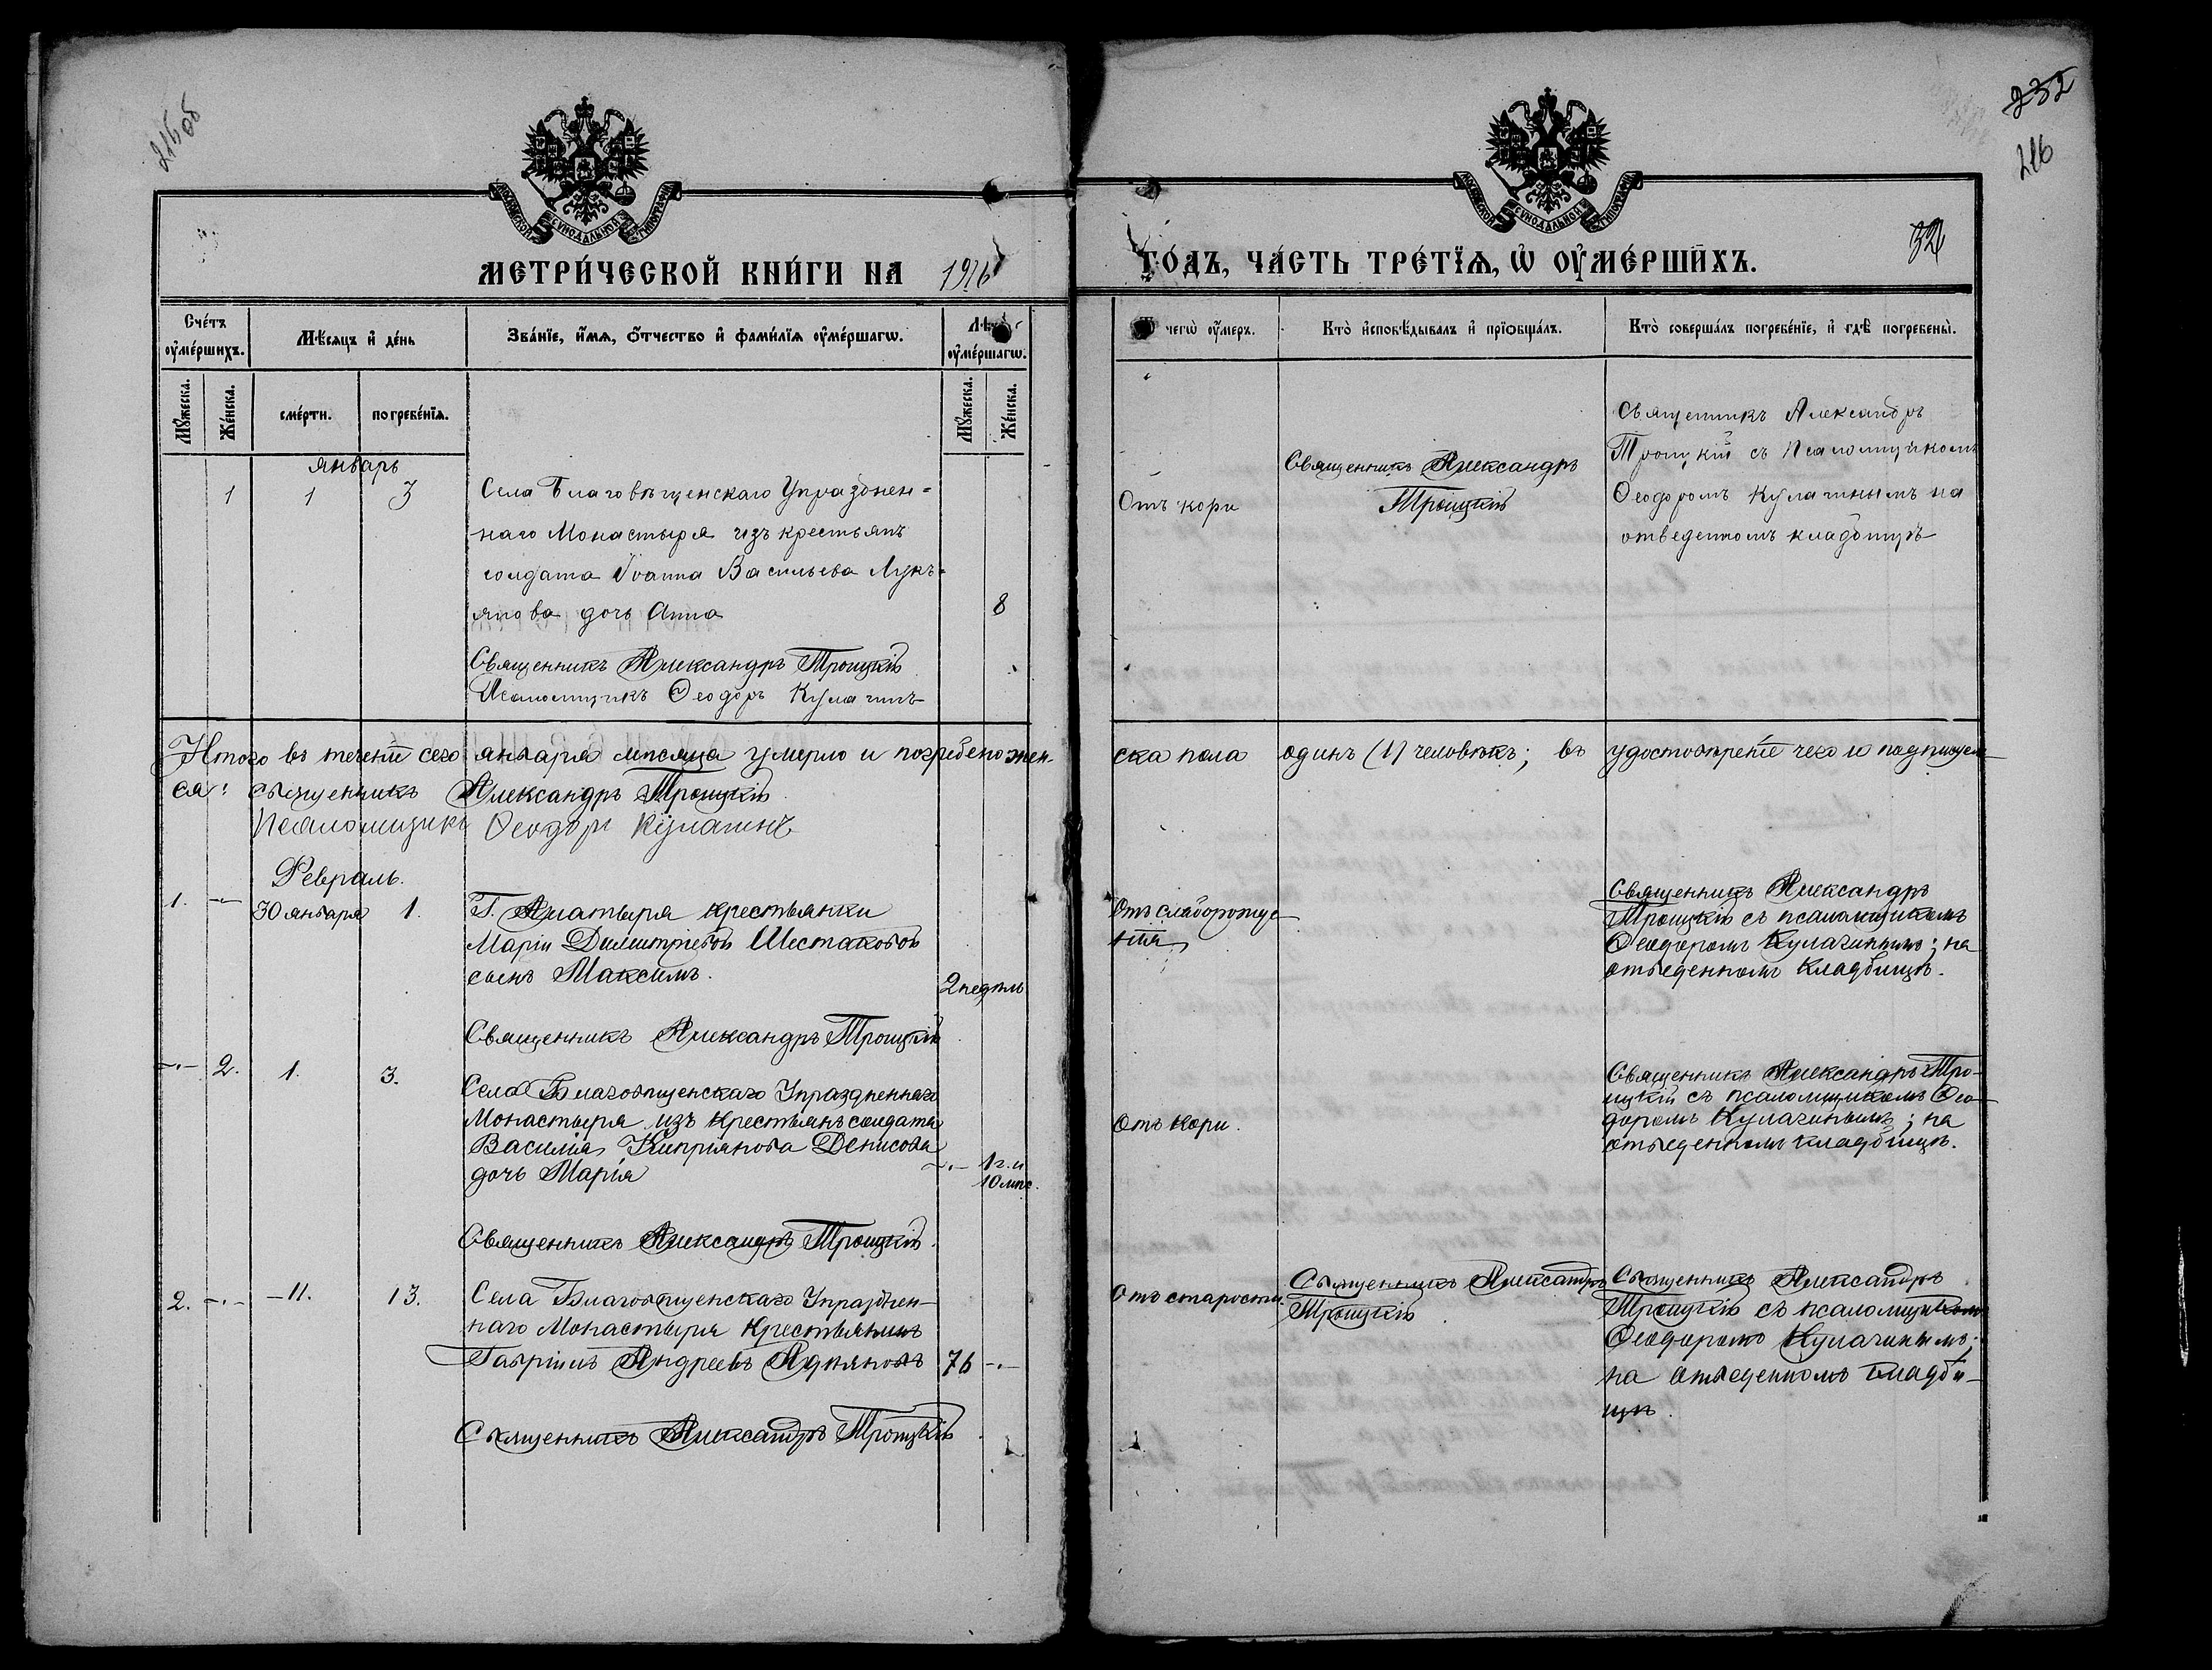 215 об
232
216
32
МОСКОВСКОЙ СУНОДАЛЬНОЙ ТИПОГРАФІИ
МОСКОВСКОЙ СУНОДАЛЬНОЙ ТИПОГРАФІИ
МЕТРИ́ЧЕСКОЙ КНИ́ГИ НА 1916 ГО́ДЪ, ЧА́СТЬ ТРЕ́ТЇѦ, Ѡ ОУ҆МЕ́РШИХЪ.
Сче́тъ оу҆ме́ршихъ.
Мѣ́сѧцъ и҆ де́нь
Зва́нїе, и҆́мѧ, ѻ҆́тчество и҆ фами́лїѧ оу҆ме́ршагѡ.
Лѣ́ оу҆ме́ршагѡ.
чегѡ̀ оу҆́меръ.
Кто̀ и҆сповѣ́дывалъ и҆ прїѡбща́лъ.
Кто̀ соверша́лъ погребе́нїе, и҆ гдѣ̀ погребены̀.
Мꙋ́жеска.
Же́нска.
сме́рти.
погребе́нїѧ.
Мꙋ́жеска.
Же́нска.
январь
1 1 3
Села Благовѣщенскаго Упразднен=
наго Монастыря изъ крестьянъ
солдата Іоанна Васильева Лукь=
янова дочь Анна
8
Священникъ Александръ Троицкій
Псаломщикъ Ѳеодоръ Кулагинъ
Отъ кори
Священникъ Александръ
Троицкій
Священникъ Александръ
Троицкій съ Псаломщикомъ
Ѳеодоромъ Кулагинымъ на
отведенномъ кладбищѣ
Итого въ теченіи сего января мѣсяца умерло и погребено жен-
ска пола одинъ (1) человѣкъ; въ удостовѣреніе чего и подписуем
ся: священникъ Александръ Троицкій
Псаломщикъ Ѳеодоръ Кулагинъ
Февраль.
1. -"- 30 января 1.
Г. Алатыря крестьянки
Маріи Димитріевой Шестаковой
сынъ Максимъ.
2 недѣль
Священникъ Александръ Троицкій
Отъ слаборожде
нія
Священникъ Александръ
Троицкій съ псаломщикомъ
Ѳеодоромъ Кулагинымъ; на
отведенномъ кладбищѣ.
-"- 2. 1. 3.
Села Благовѣщенскаго Упраздненнаго
Монастыря изъ крестьянъ солдата
Василія Кипріянова Денисова
дочь Марія
-"- 1 г. и
10 мѣс.
Священникъ Александръ Троицкій
Отъ кори.
Священникъ Александръ Тро-
ицкій съ псаломщикомъ Ѳео-
доромъ Кулагинымъ; на
отведенномъ кладбищѣ.
2. -"- -11. 13.
Села Благовѣщенскаго Упразднен-
наго Монастыря крестьянинъ
Гавріилъ Андреевъ
76 -"-
Священникъ Александръ Троицкій
Отъ старости.
Священникъ Александръ
Троицкій
Священникъ Александръ
Троицкій съ псаломщикомъ
Ѳеодоромъ Кулагинымъ;
на отведенномъ кладби-
щѣ.